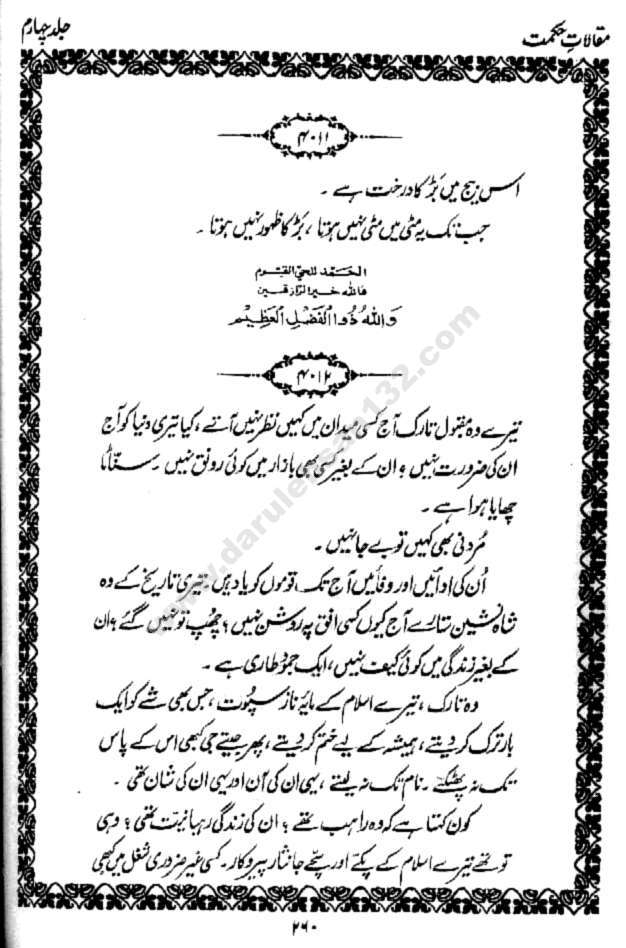 مقالاتِ حکمت جلد چہارم
۴۰۱۱
اس بیج میں بَڑ کا درخت ہے ۔
جب تک یہ مٹی میں مٹی نہیں ہوتا ، بَڑ کا ظہور نہیں ہوتا ۔
الحَمد للحيّ القيّوم
فالله خير الرّازقين
وَاللهُ ذُو الفَضْلِ العَظِيْم
۴۰۱۲
تیرے وہ مقبول تارک آج کسی میدان میں کہیں نظر نہیں آتے ، کیا تیری دنیا کو آج
ان کی ضرورت نہیں ؟ ان کے بغیر کسی بھی بازار میں کوئی رونق نہیں ۔ سنّاٹا
چھایا ہوا ہے ۔
مُردنی بھی کہیں تو بے جا نہیں ۔
اُن کی ادائیں اور وفائیں آج تک قوموں کو یاد ہیں ۔ تیری تاریخ کے وہ
شاہ نشین ستارے آج کیوں کسی افق پہ روشن نہیں ؟ چھُپ تو نہیں گئے ؟ ان
کے بغیر زندگی میں کوئی کیف نہیں ، ایک جمود طاری ہے ۔
وہ تارک ، تیرے اسلام کے مایۂ ناز سپوت ، جس بھی شے کو ایک
بار ترک کر دیتے ، ہمیشہ کے لیے ختم کر دیتے ، پھر جیتے جی کبھی اس کے پاس
تک نہ پھٹکتے ۔ نام تک نہ لیتے ، یہی ان کی آن اور یہی ان کی شان تھی ۔
کون کہتا ہے کہ وہ راہب تھے ؟ ان کی زندگی رہبانیت تھی ؟ وہی
تو تھے تیرے اسلام کے پکّے اور سچّے جانثار پیروکار ۔ کسی غیر ضروری شغل میں کبھی
۲۶۰
www.darulehsan132.com